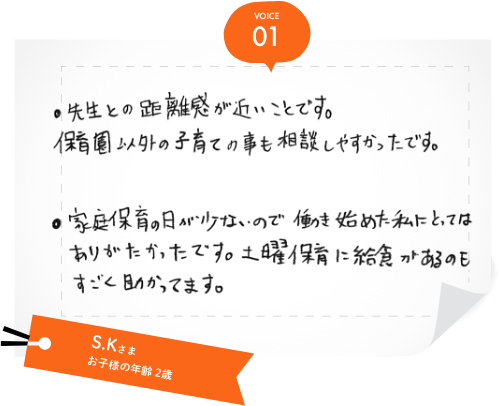 VOICE
01
• 先生との距離感が近いことです。
保育園以外の子育ての事も相談しやすかったです。
• 家庭保育の日が少ないので 働き始めた私にとっては
ありがたかったです。土曜保育に給食があるのも
すごく助かってます。
S.Kさま
お子様の年齢 2歳